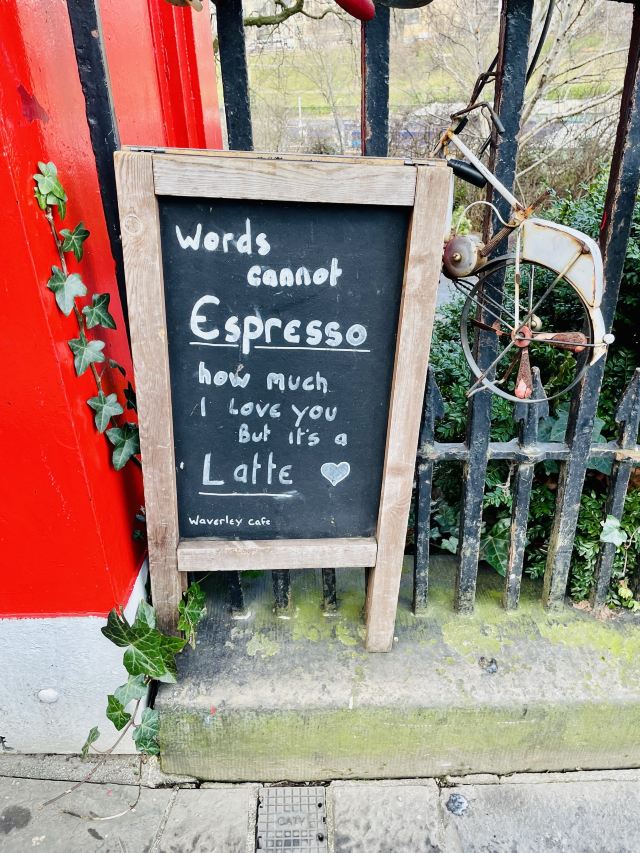 Words
cannot
Espresso
how much
I Love you
But it's a
Latte
Waverley cafe
CATV